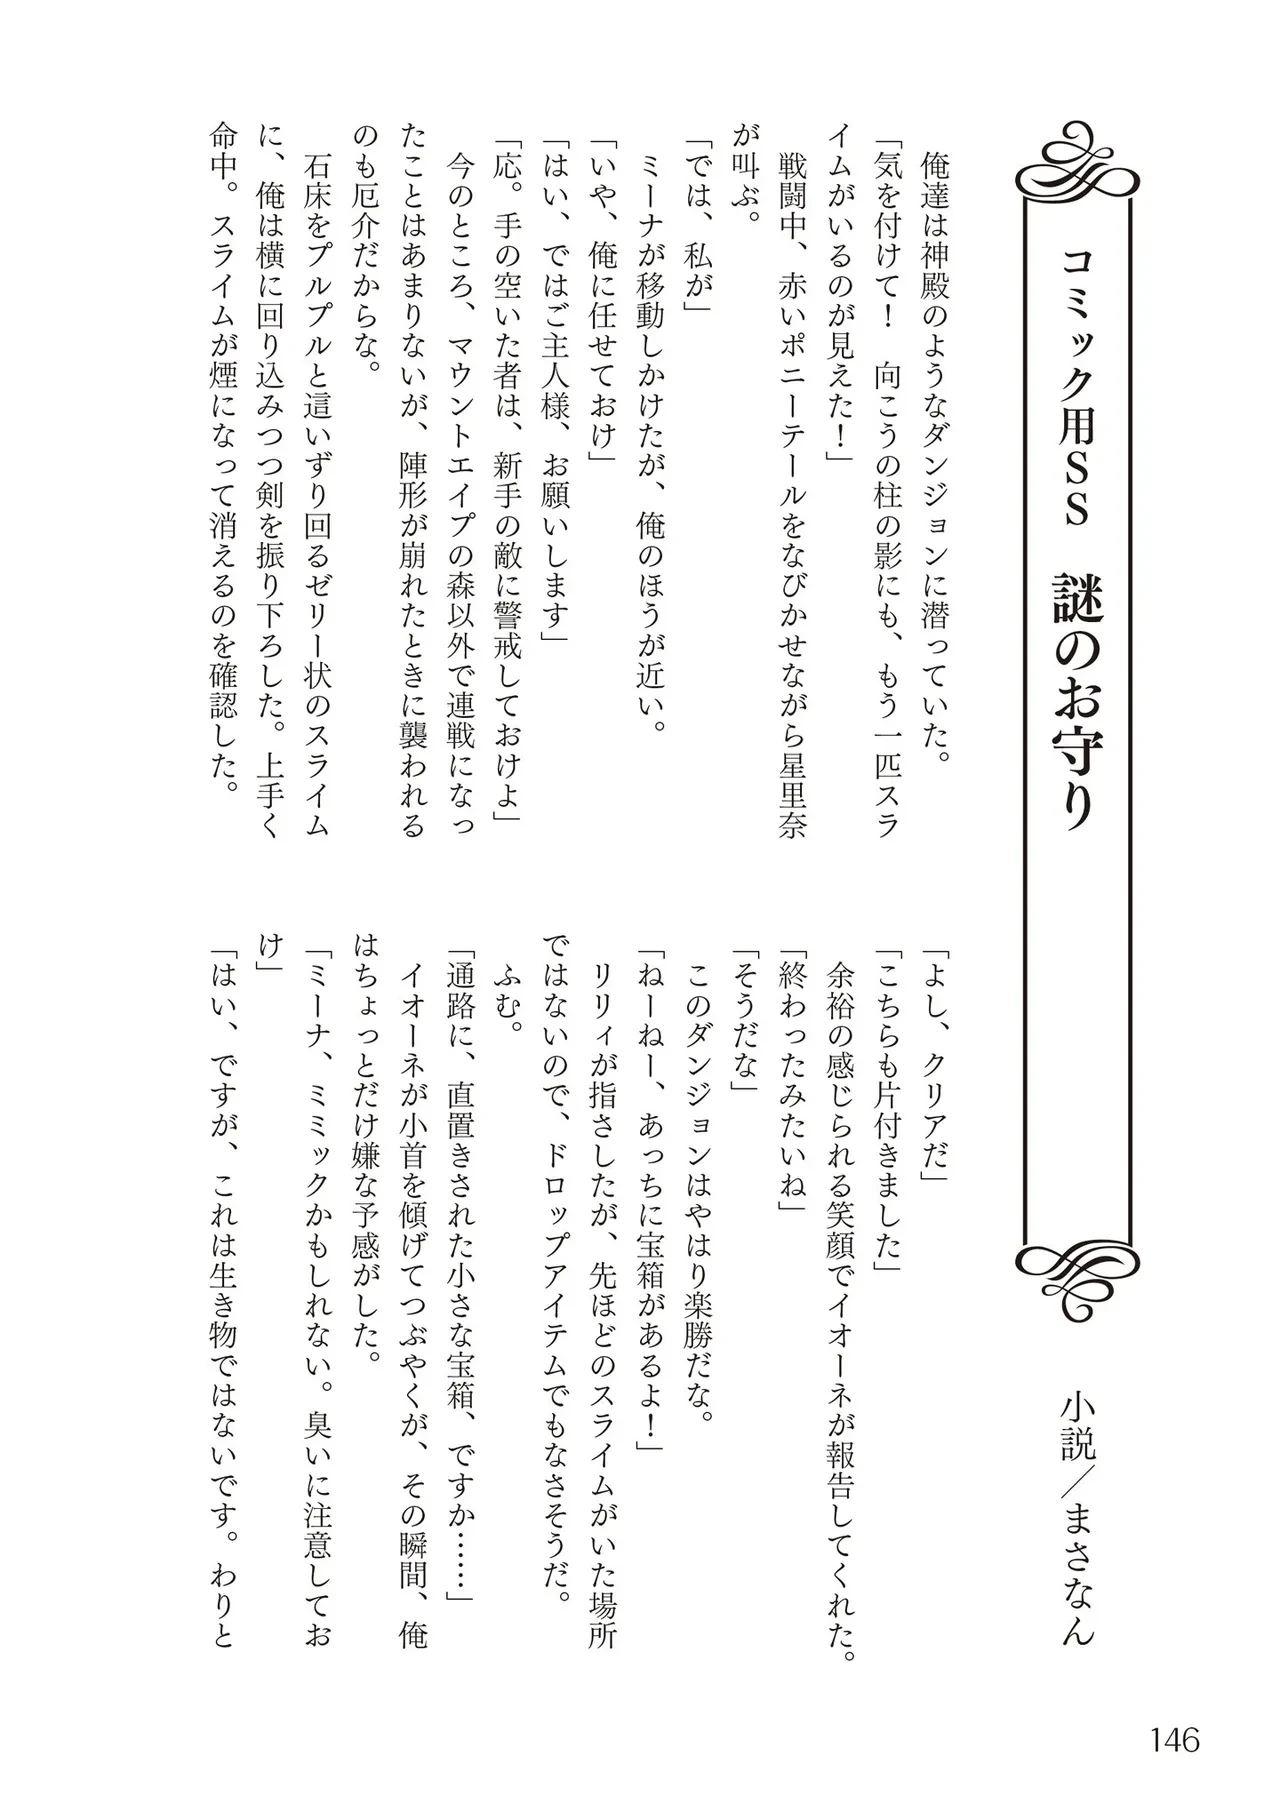 コミック用SS　謎のお守り
小説／まさなん
　俺達は神殿のようなダンジョンに潜っていた。
「気を付けて！　向こうの柱の影にも、もう一匹スラ
イムがいるのが見えた！」
　戦闘中、赤いポニーテールをなびかせながら星里奈
が叫ぶ。
「では、私が」
　ミーナが移動しかけたが、俺のほうが近い。
「いや、俺に任せておけ」
「はい、ではご主人様、お願いします」
「応。手の空いた者は、新手の敵に警戒しておけよ」
　今のところ、マウントエイプの森以外で連戦になっ
たことはあまりないが、陣形が崩れたときに襲われる
のも厄介だからな。
　石床をプルプルと這いずり回るゼリー状のスライム
に、俺は横に回り込みつつ剣を振り下ろした。上手く
命中。スライムが煙になって消えるのを確認した。
「よし、クリアだ」
「こちらも片付きました」
　余裕の感じられる笑顔でイオーネが報告してくれた。
「終わったみたいね」
「そうだな」
　このダンジョンはやはり楽勝だな。
「ねーねー、あっちに宝箱があるよ！」
　リリィが指さしたが、先ほどのスライムがいた場所
ではないので、ドロップアイテムでもなさそうだ。
　ふむ。
「通路に、直置きされた小さな宝箱、ですか……」
　イオーネが小首を傾げてつぶやくが、その瞬間、俺
はちょっとだけ嫌な予感がした。
「ミーナ、ミミックかもしれない。臭いに注意してお
け」
「はい、ですが、これは生き物ではないです。わりと
146